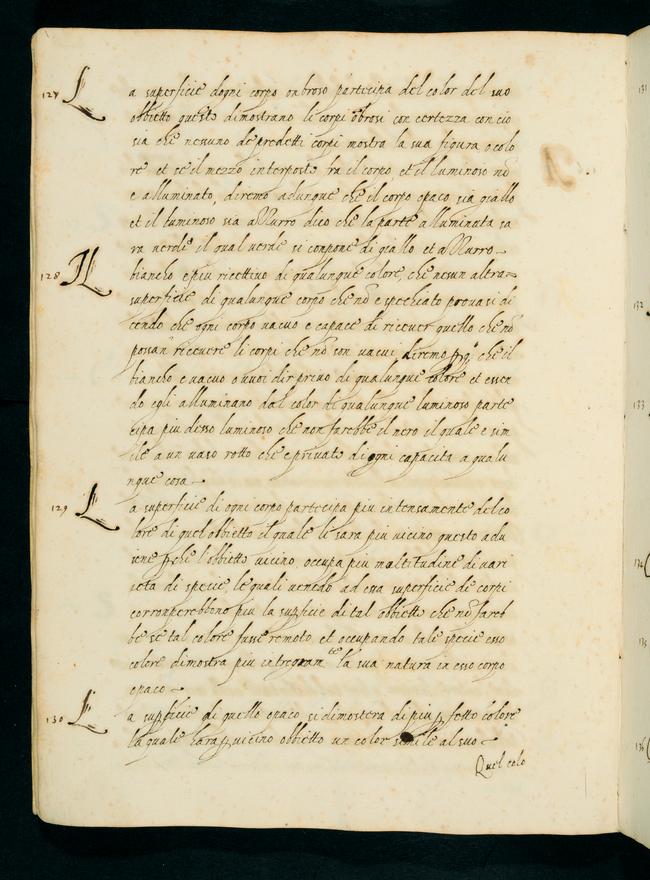 127 La superficie dogni corpo onbroso participa del color del suo
obbietto questo dimostrano li corpi obrosi con certezza concio
sia che nessuno de predetti corpi mostra la sua figura o colo
re et se il mezzo interposto fra il corpo et il luminoso nō
e alluminato, diremo adunque che il corpo opaco sia giallo
et il luminoso sia aZZurro dico che la parte alluminata sa
ra verde il qual verde si conpone di giallo et aZZurro
128 IL biancho e piu ricettivo di qualunque colore, che nesun altra
superficie di qualunque corpo che nō e spechiato provasi di
cendo che ogni corpo vacuo e capace di ricever quello che nō
possan ricevere li corpi che nō son vacui diremo che il
biancho e vacuo o vuoi dir privo di qualunque colore et essen
do egli alluminano dal color di qualunque luminoso parte
cipa piu desso luminoso che non farebbe il nero il quale e sim
ile a un vaso rotto che e privato di ogni capacita a qualu
nque cosa
129 La superficie di ogni corpo partecipa piu intensamente del co
lore di quel obbietto il quale li sara piu vicino questo adu
iene p che l'obbietto vicino, occupa piu moltitudine di vari
ieta di specie, le quali venedo, ad ena superficie di corpi
corronperebbono piu la supficie di tal obbietto che nō fareb
be se tal colore fusse remoto et occupando tale specie esso
colore dimostra piu integramte la sua natura in esso corpo
opaco
130 La supficie di quello opaco si dimostera di piu pfetto colore
la quale hara p vicino obbietto un color simile al suo
Quel colo
131
132
133
134
135
136